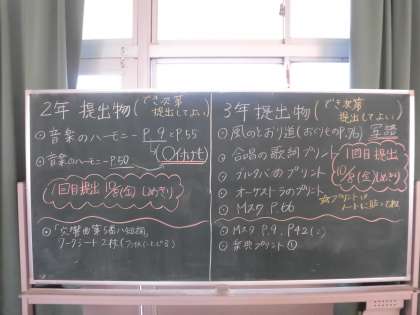 2年 提出物(でき次第
提出してよい)
・音楽のハーモニー P.9とP.55
・音楽のハーモニー P.50
1回目提出 10/5(金)しめきり
・「交響曲第5番ハ短調」
ワークシート2枚
3年 提出物(でき次第
提出してよい)
・風のとおり道(おくりものP.76)
・合唱の歌詞プリント
・ブルタバのプリント
・オーケストラのプリント
・Mスタ P.66
1回目提出
10/5(金)しめきり
☆プリントは
ノートに貼って
・Mスタ P.9, P42
・プリント①